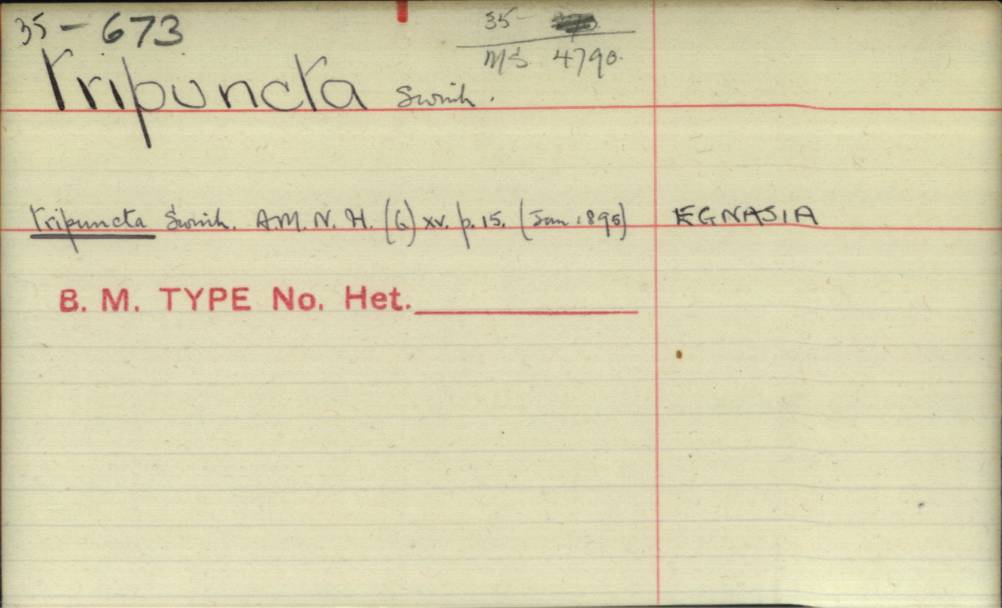 35-673
35-
MS 4790.
tripuncta Swinh.
tripuncta Swinh. A.M.N.H. (6) xv. p. 15. (Jan 1895) EGNASIA
B. M. TYPE No. Het.